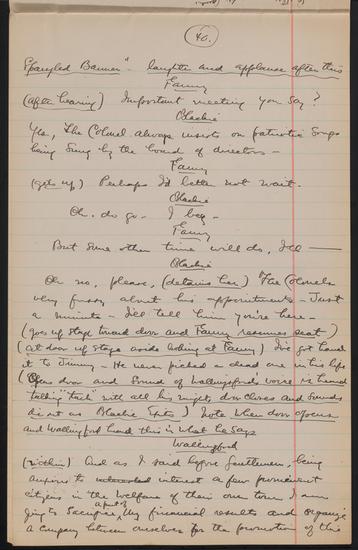 40.
Spangled Banner" - laughter and applause after this
Fanny
(after hearing) Important meeting you say?
Blackie
Yes, The Colonel always insists on patriotic songs
being sung by the board of directors -
Fanny
(gets up) Perhaps I'd better not wait.
Blackie
Oh. do go - I beg -
Fanny
But some other time will do, I'll ——
Blackie
Oh no, please, (detains her) "The Colonel's
very fussy about his appointments - Just
a minute - I'll tell him you're here -
(goes up stage toward door and Fanny resumes seat)
(at door up stage aside looking at Fanny) I've got hand
it to Jimmy - He never picked a dead one in his life
(Opens door and sound of Wallingford's voice is heard
"talking talk" with all his might, door closes and sounds
die out as Blackie Exits) Note when door opens
and Wallingford heard this is what he says
Wallingford
(within) And as I said before Gentlemen, being
anxious to interest a few prominent
citizens in the welfare of their own town I am
going to sacrifice a part of my financial results and organize
a company between ourselves for the promotion of this